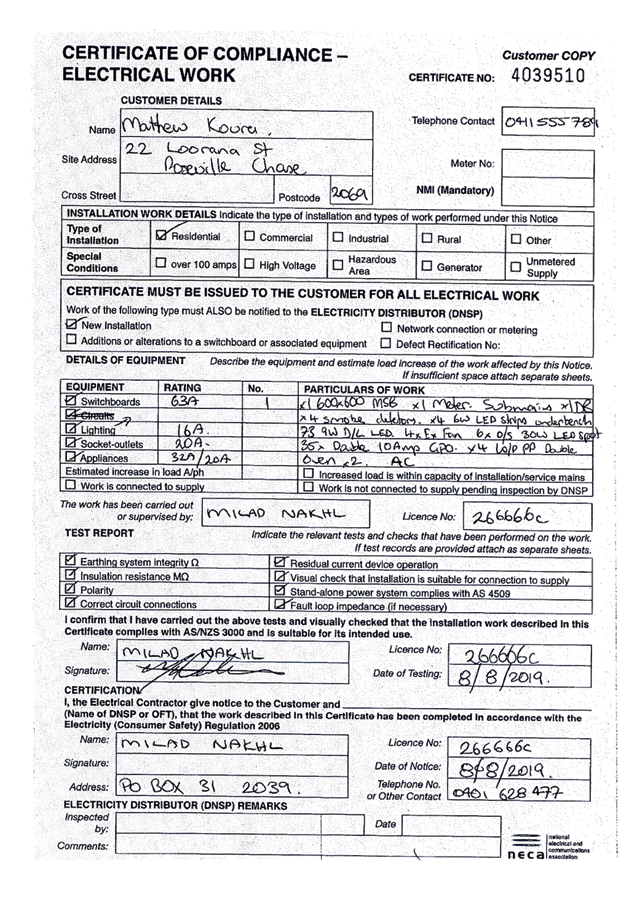 CERTIFICATE OF COMPLIANCE –
ELECTRICAL WORK
Customer COPY
CERTIFICATE NO: 4039510
CUSTOMER DETAILS
Name Mathew Koura.
Telephone Contact 0411555789
Site Address 22 Loorana St
Roseville Chase
Meter No:
Cross Street Postcode 2069 NMI (Mandatory)
INSTALLATION WORK DETAILS Indicate the type of installation and types of work performed under this Notice
Type of Installation Residential Commercial Industrial Rural Other
Special Conditions over 100 amps High Voltage Hazardous Area Generator Unmetered Supply
CERTIFICATE MUST BE ISSUED TO THE CUSTOMER FOR ALL ELECTRICAL WORK
Work of the following type must ALSO be notified to the ELECTRICITY DISTRIBUTOR (DNSP)
New Installation Network connection or metering
Additions or alterations to a switchboard or associated equipment Defect Rectification No:
DETAILS OF EQUIPMENT Describe the equipment and estimate load increase of the work affected by this Notice.
If insufficient space attach separate sheets.
EQUIPMENT RATING No. PARTICULARS OF WORK
Switchboards 63A 1 x1 600x600 MSB x1 Meter. Submains x1 DB
Circuits x4 smoke detectors. x4 6W LED strips underbench
Lighting 16A 73 9W D/L LED. 4x Ex Fan 6x O/S 30W LED spot
Socket-outlets 20A 35x Double 10Amp GPO. x4 PP Double
Appliances 32A/20A oven x2. AC
Estimated increase in load A/ph Increased load is within capacity of installation/service mains
Work is connected to supply Work is not connected to supply pending inspection by DNSP
The work has been carried out
or supervised by: MILAD NAKHL Licence No: 266666c
TEST REPORT Indicate the relevant tests and checks that have been performed on the work.
If test records are provided attach as separate sheets.
Earthing system integrity Ω Residual current device operation
Insulation resistance MΩ Visual check that installation is suitable for connection to supply
Polarity Stand-alone power system complies with AS 4509
Correct circuit connections Fault loop impedance (if necessary)
I confirm that I have carried out the above tests and visually checked that the installation work described in this
Certificate complies with AS/NZS 3000 and is suitable for its intended use.
Name: MILAD NAKHL Licence No: 266666c
Signature: Date of Testing: 8/8/2019.
CERTIFICATION
I, the Electrical Contractor give notice to the Customer and
(Name of DNSP or OFT), that the work described in this Certificate has been completed in accordance with the
Electricity (Consumer Safety) Regulation 2006
Name: MILAD NAKHL Licence No: 266666c
Signature: Date of Notice: 8/8/2019.
Address: PO BOX 31 2039. Telephone No. or Other Contact 0401 628 477
ELECTRICITY DISTRIBUTOR (DNSP) REMARKS
Inspected by: Date
Comments:
neca national electrical and communications association